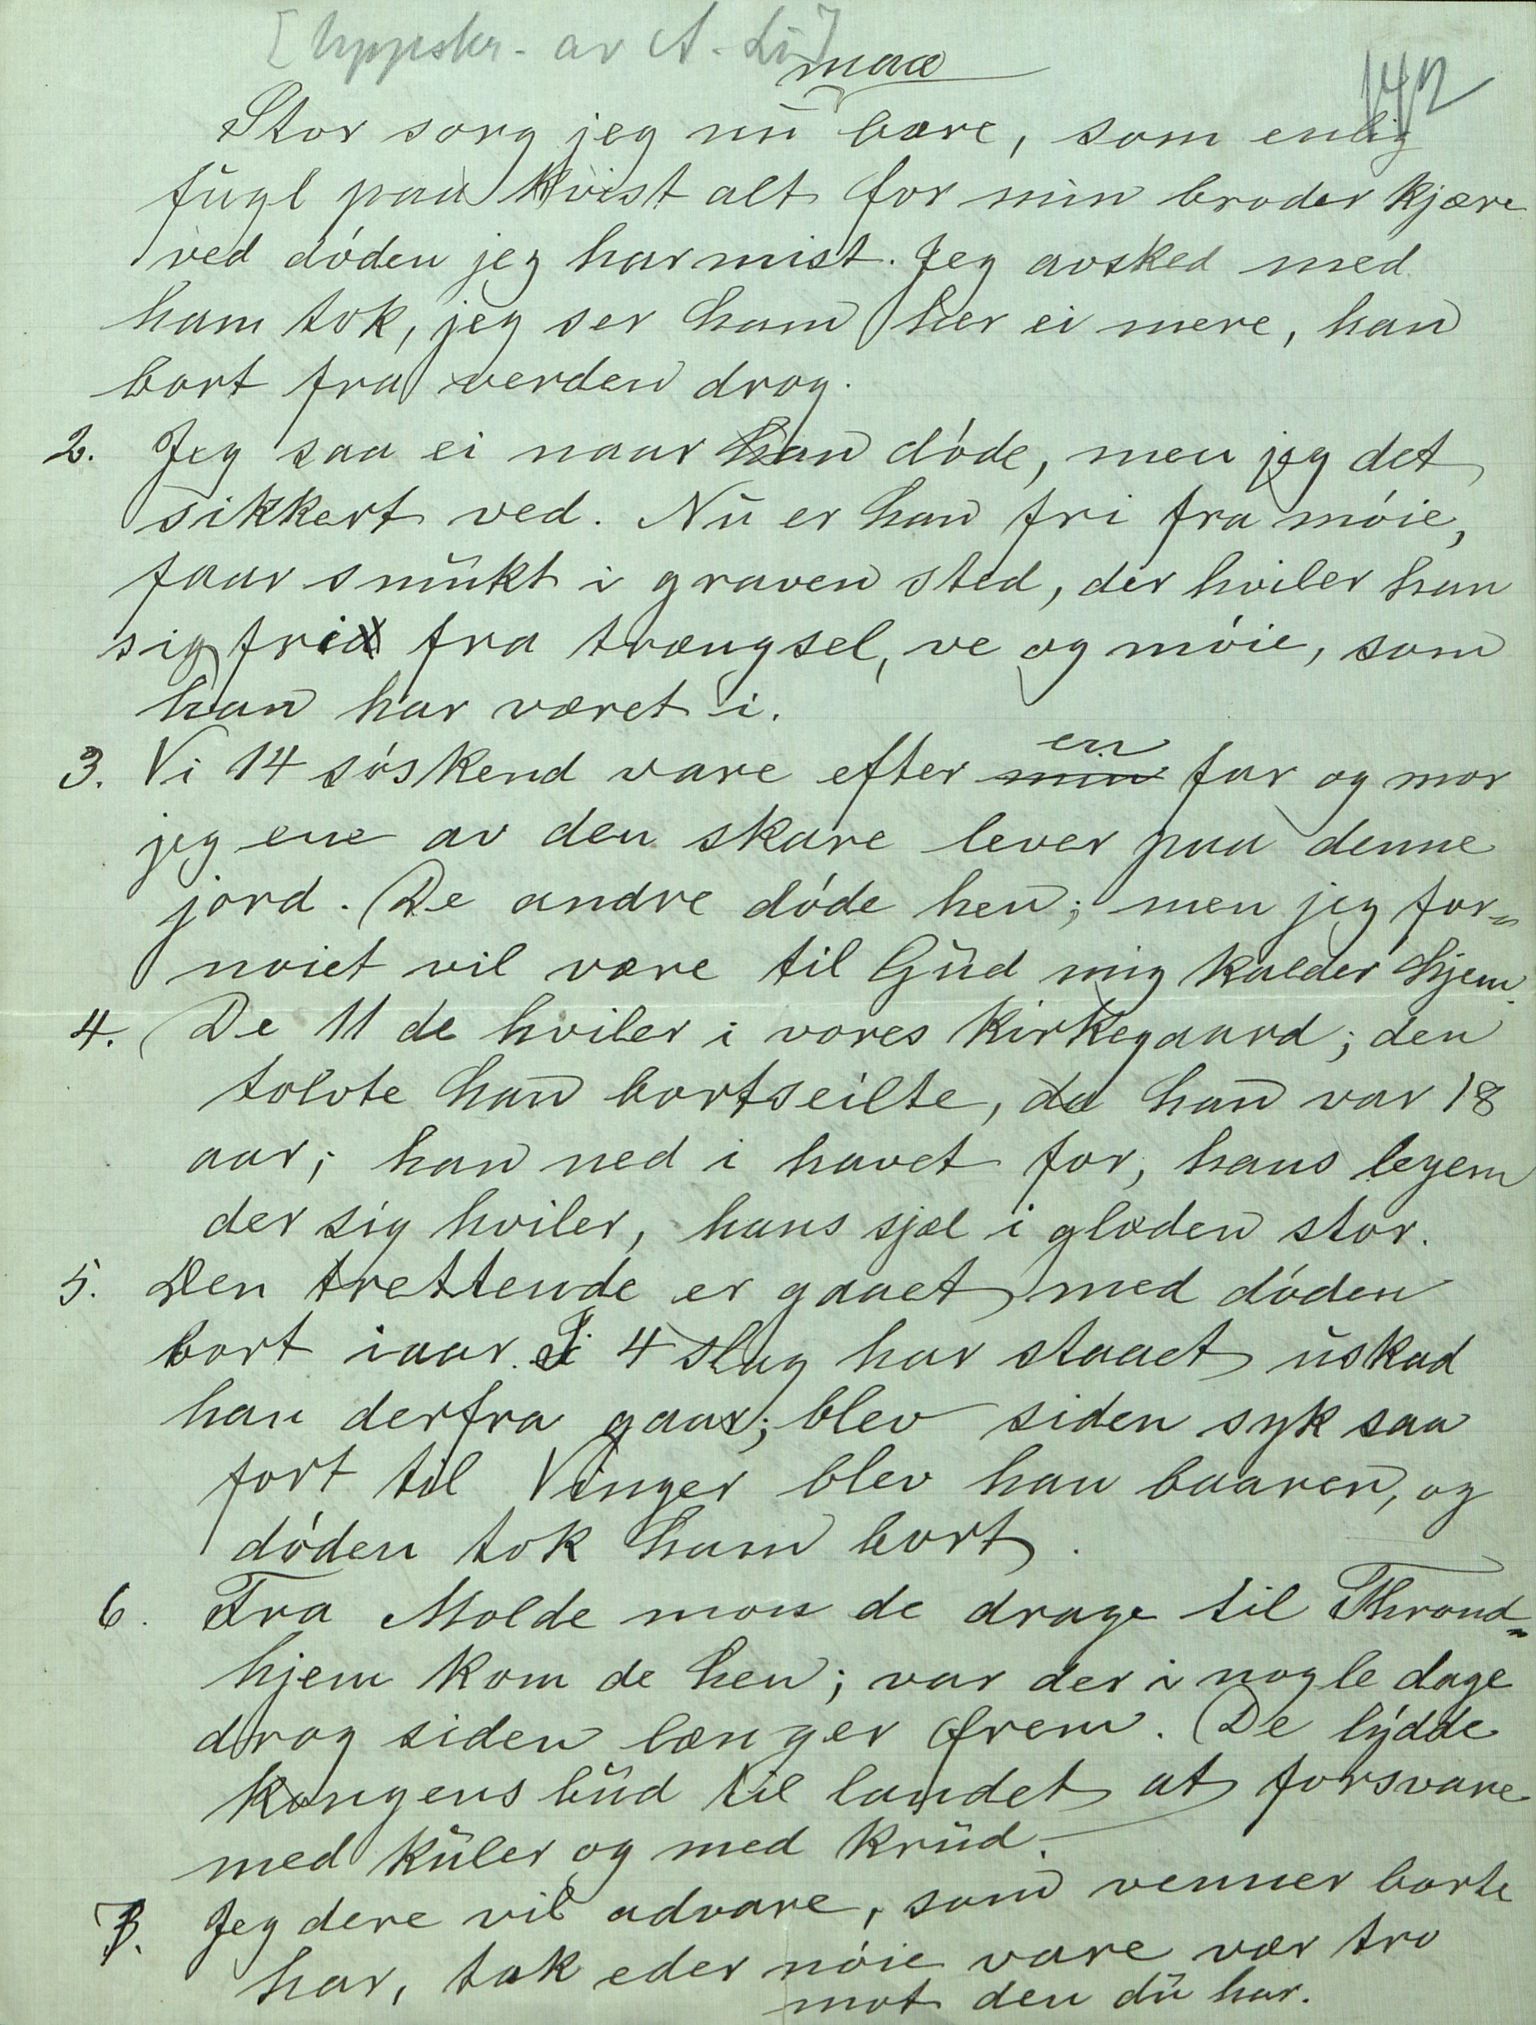 [Uppskr. av A. Li]
142
maa
Stor sorg jeg nu bære, som enlig
fugl paa kvist alt for min broder kjære
ved døden jeg har mist. Jeg avsked med
ham tok, jeg ser ham her ei mere, han
bort fra verden drog.
2. Jeg saa ei naar han døde, men jeg det
sikkert ved. Nu er han fri fra møie,
faar smukt i graven sted, der hviler han
sig fri fra trængsel, ve og møie, som
han har været i.
en
3. Vi 14 søskend vare efter min far og mor
jeg ene av den skare lever paa denne
jord. De andre døde hen; men jeg for-
nøiet vil være til Gud mig kalder hjem.
4. De 11 de hviler i vores kirkegaard; den
tolvte han bortseilte, da han var 18
aar; han ned i havet for, hans legem
der sig hviler, hans sjæl i glæden stor.
5. Den trettende er gaaet med døden
bort iaar. I 4 slag har staaet uskad
han derfra gaar; blev siden syk saa
fort til Vinger blev han baaren, og
døden tok ham bort.
6. Fra Molde mon de drage til Thrond-
hjem kom de hen; var der i nogle dage
drog siden længer frem. De lydde
kongens bud til landet at forsvare
med kuler og med krud.
7. Jeg dere vil advare, som venner borte
har, tak eder nøie vare vær tro
mot den du har.